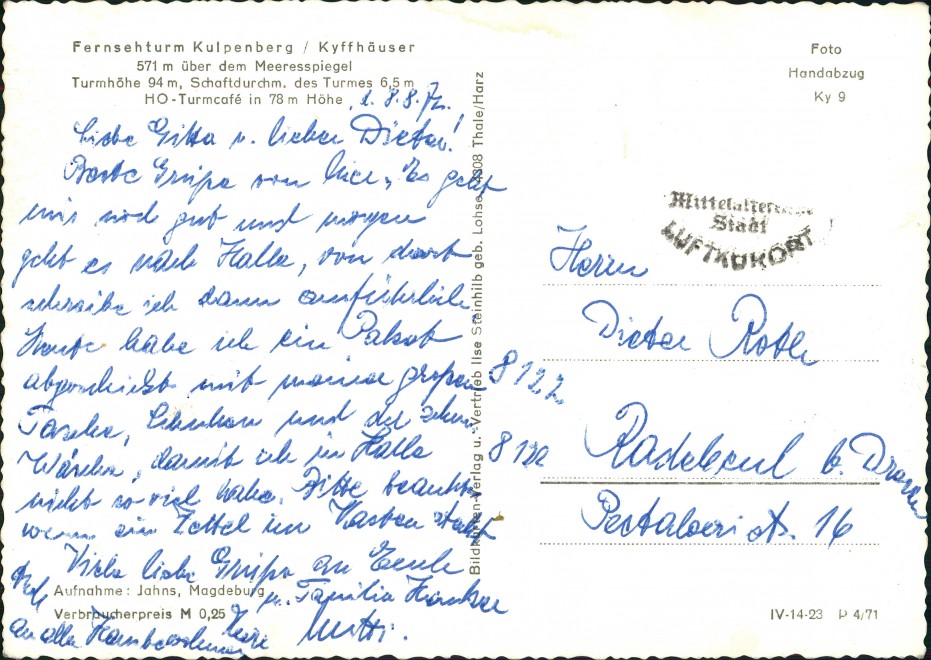 Fernsehturm Kulpenberg / Kyffhäuser
571 m über dem Meeresspiegel
Turmhöhe 94 m, Schaftdurchm. des Turmes 6,5 m
HO-Turmcafé in 78 m Höhe
d. 8.8.72.
Liebe Gitta u. lieber Dieter!
Beste Grüße von hier. Es geht
mir noch gut und morgen
geht es nach Halle, von dort
schreibe ich dann ausführlich.
Heute habe ich ein Paket
abgeschickt mit meiner großen
Tasche, und der
Wäsche, damit ich in Halle
nicht so viel habe. Bitte
wenn ein Zettel im Kasten steckt
Viele liebe Grüße an
u. Familie
Mutti.
an alle
Aufnahme: Jahns, Magdeburg
Verbraucherpreis M 0,25
Bildkarten-Verlag u. -Vertrieb Ilse Steinhilb geb. Lohse, 4308 Thale/Harz
Foto
Handabzug
Ky 9
Mittelalterliche
Stadt
LUFTKURORT
Herrn
Dieter Roth
8122
8122 Radebeul b. Dresden
Pestalozzistr. 16
IV-14-23 P 4/71